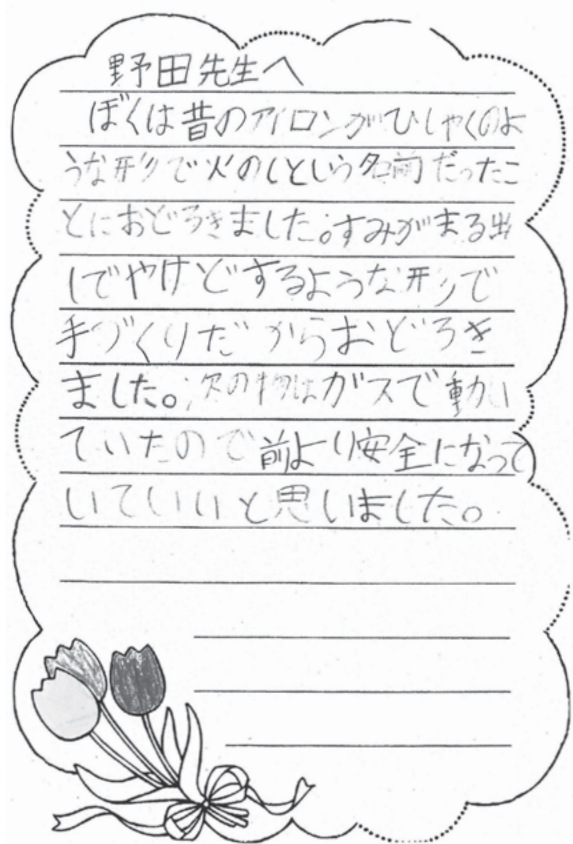 野田先生へ
ぼくは昔のアイロンがひしゃくのよ
うな形で火のしという名前だったこ
とにおどろきました。すみがまる出
しでやけどするような形で
手づくりだからおどろき
ました。次の物はガスで動い
ていたので前より安全になって
いていいと思いました。